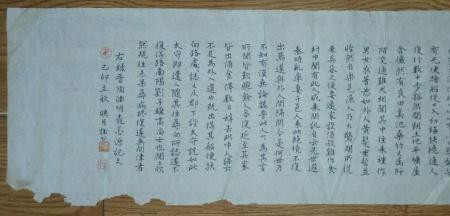 有光便捨船從口入初極狹纔通人
復行數十步豁然開朗土地平曠屋
舍儼然有良田美池桑竹之屬阡
陌交通雞犬相聞其中往來種作
男女衣著悉如外人黃髮垂髫並
怡然自樂見漁人乃大驚問所從
來具答之便要還家設酒殺雞作食
村中聞有此人咸來問訊自云先世避
秦時亂率妻子邑人來此絕境不復
出焉遂與外人間隔問今是何世乃
不知有漢無論魏晉此人一一為具言
所聞皆歎惋餘人各復延至其家
皆出酒食停數日辭去此中人語云
不足為外人道也既出得其船便扶
向路處處誌之及郡下詣太守說如此
太守即遣人隨其往尋向所誌遂不
復得路南陽劉子驥高尚士也聞之欣
然規往未果尋病終後遂無問津者
右錄晉陶淵明桃花源記文
己卯立秋 映月